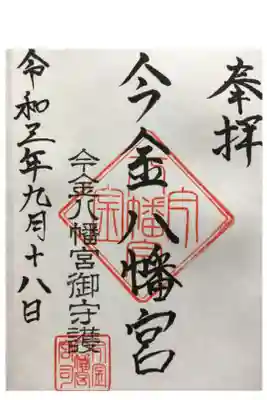 奉拝
今金八幡宮
今金八幡宮御守護
令和三年九月十八日